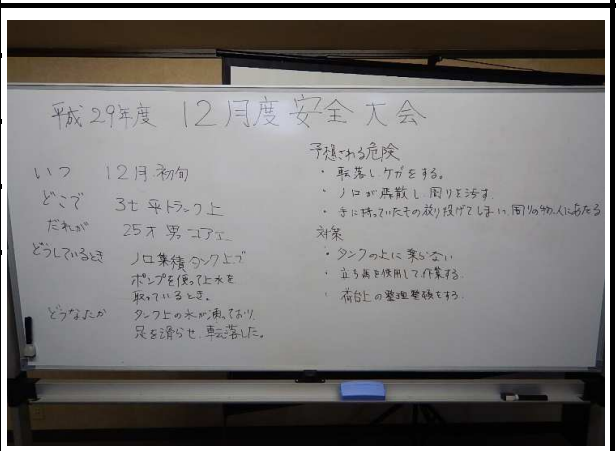 平成29年度 12月度 安全大会
いつ 12月 初旬
どこで 3t 平トラック上
だれが 25才 男 コアエ
どうしているとき ノロ集積タンク上で
ポンプを使って上水を
取っているとき。
どうなったか タンク上の水が凍っており
足を滑らせ、転落した。
予想される危険
・転落し、ケガをする。
・ノロが飛散し、周りを汚す。
・手に持っていたもの放り投げてしまい、周りの物、人にあたる
対策
・タンクの上に乗らない
・立ち馬を使用して作業する。
・荷台上の整理整頓をする。